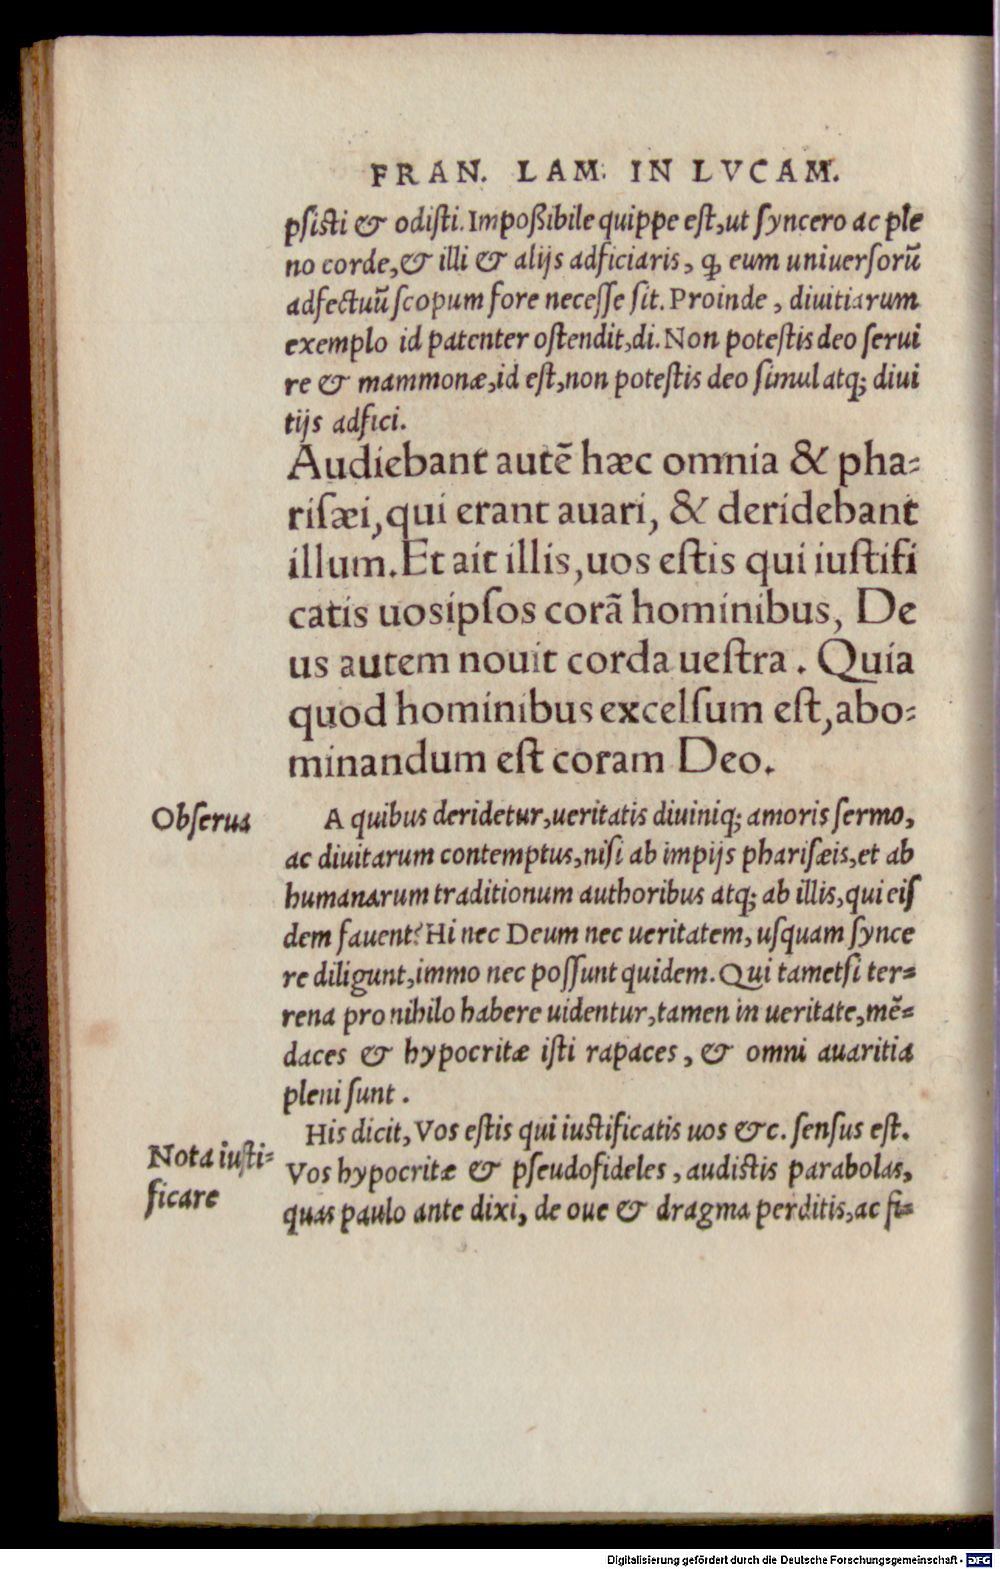 FRAN. LAM. IN LVCAM.
psisti & odisti. Impoßibile quippe est, ut syncero ac ple
no corde, & illi & alijs adficiaris, ꝙ eum uniuersorũ
adfectuũ scopum fore necesse sit. Proinde, diuitiarum
exemplo id patenter ostendit, di. Non potestis deo serui
re & mammonæ, id est, non potestis deo simul atq; diui
tijs adfici.
Audiebant autẽ hæc omnia & pha-
risæi, qui erant auari, & deridebant
illum. Et ait illis, uos estis qui iustifi
catis uosipsos corã hominibus, De
us autem nouit corda uestra. Quia
quod hominibus excelsum est, abo-
minandum est coram Deo.
Obserua
A quibus deridetur, ueritatis diuiniq; amoris sermo,
ac diuitarum contemptus, nisi ab impijs pharisæis, et ab
humanarum traditionum authoribus atq; ab illis, qui eis
dem fauent? Hi nec Deum nec ueritatem, usquam synce
re diligunt, immo nec possunt quidem. Qui tametsi ter-
rena pro nihilo habere uidentur, tamen in ueritate, mẽ-
daces & hypocritæ isti rapaces, & omni auaritia
pleni sunt.
His dicit, Vos estis qui iustificatis uos &c. sensus est.
Nota iusti-
ficare
Vos hypocritæ & pseudofideles, audistis parabolas,
quas paulo ante dixi, de oue & dragma perditis, ac fi-
Digitalisierung gefördert durch die Deutsche Forschungsgemeinschaft - DFG